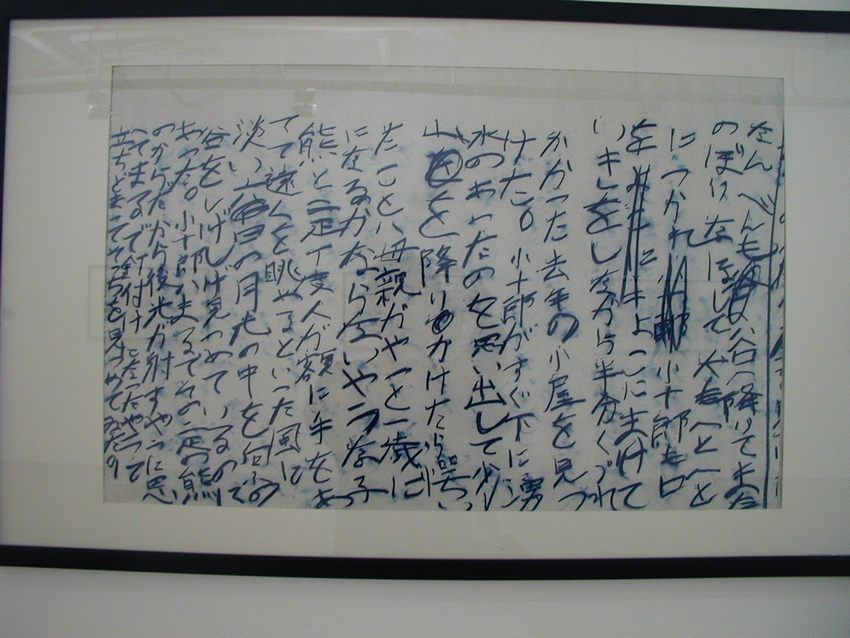 なんべんも谷へ降りてまた
のぼりなほして犬もへとへと
につかれ小十郎も口
をよこにまげて
いきをしながら半分くづれ
かかった去年の小屋を見つ
けた。小十郎がすぐ下に湧
水のあったのを思い出して少し
山を降りかけたら愕い
たことは母親がやっと一歳に
になるかならないやうな子
熊と二疋丁度人が額に手をあ
てて遠くを眺めるといった風に
淡い六日の月光の中を向ふの
谷をしげしげ見つめているので
あった。小十郎はまるでその二疋の熊
のからだから後光が射すやうに思
へてまるで釘付けになったやうに
立ちどまってそっちを見つめてゐた。